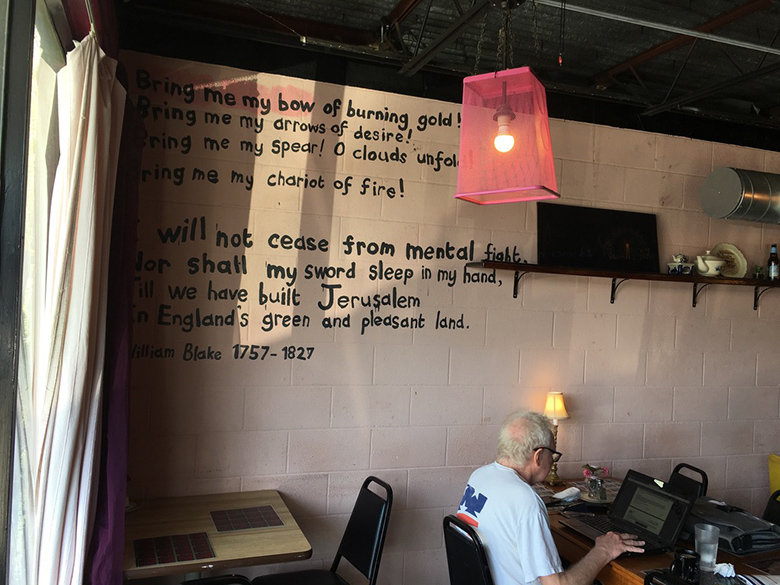 Bring me my bow of burning gold!
Bring me my arrows of desire!
Bring me my spear! O clouds unfold
Bring me my chariot of fire!
I will not cease from mental fight,
Nor shall my sword sleep in my hand,
Till we have built Jerusalem
In England's green and pleasant land.
William Blake 1757-1827